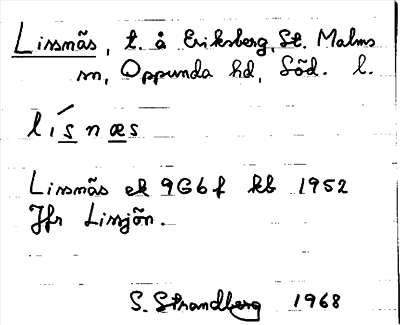 Lissnäs, t. å Eriksberg, St. Malms
sn, Oppunda hd, Söd. l.
lí s n æ s
Lissnäs ek 9G6f kb 1952
Jfr Lissjön.
S. Strandberg 1968